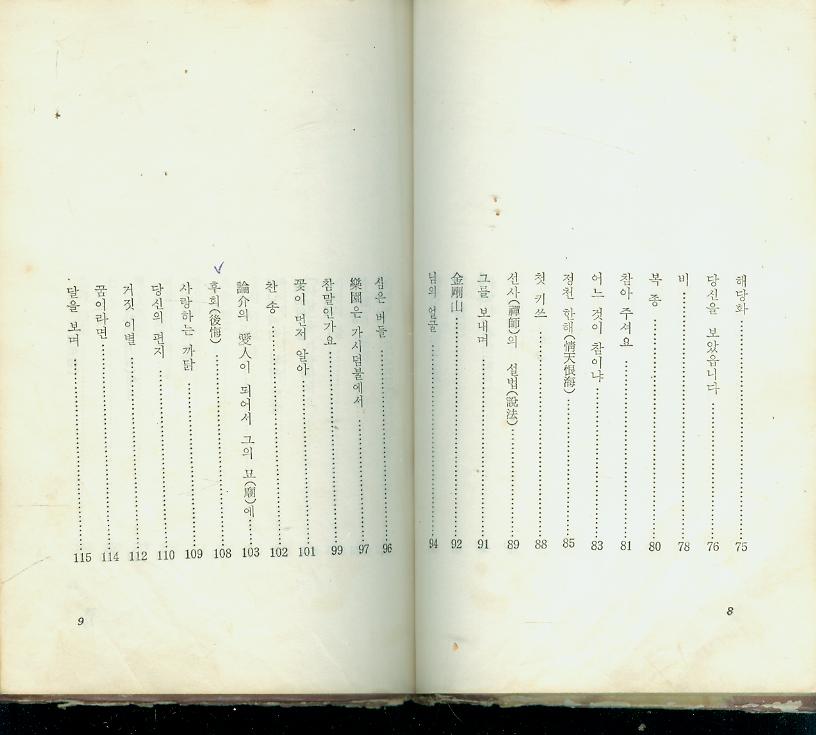 해당화 …… 75
당신을 보았읍니다 …… 76
비 …… 78
복 종 …… 80
참아 주셔요 …… 81
어느 것이 참이냐 …… 83
정천 한해(情天恨海) …… 85
첫 키쓰 …… 88
선사(禪師)의 설법(說法) …… 89
그를 보내며 …… 91
金剛山 …… 92
님의 얼굴 …… 94
8
심은 버들 …… 96
樂園은 가시덤불에서 …… 97
참말인가요 …… 99
꽃이 먼저 알아 …… 101
찬 송 …… 102
論介의 愛人이 되어서 그의 묘(廟)에 …… 103
후회(後悔) …… 108
사랑하는 까닭 …… 109
당신의 편지 …… 110
거짓 이별 …… 112
꿈이라면 …… 114
달을 보며 …… 115
9